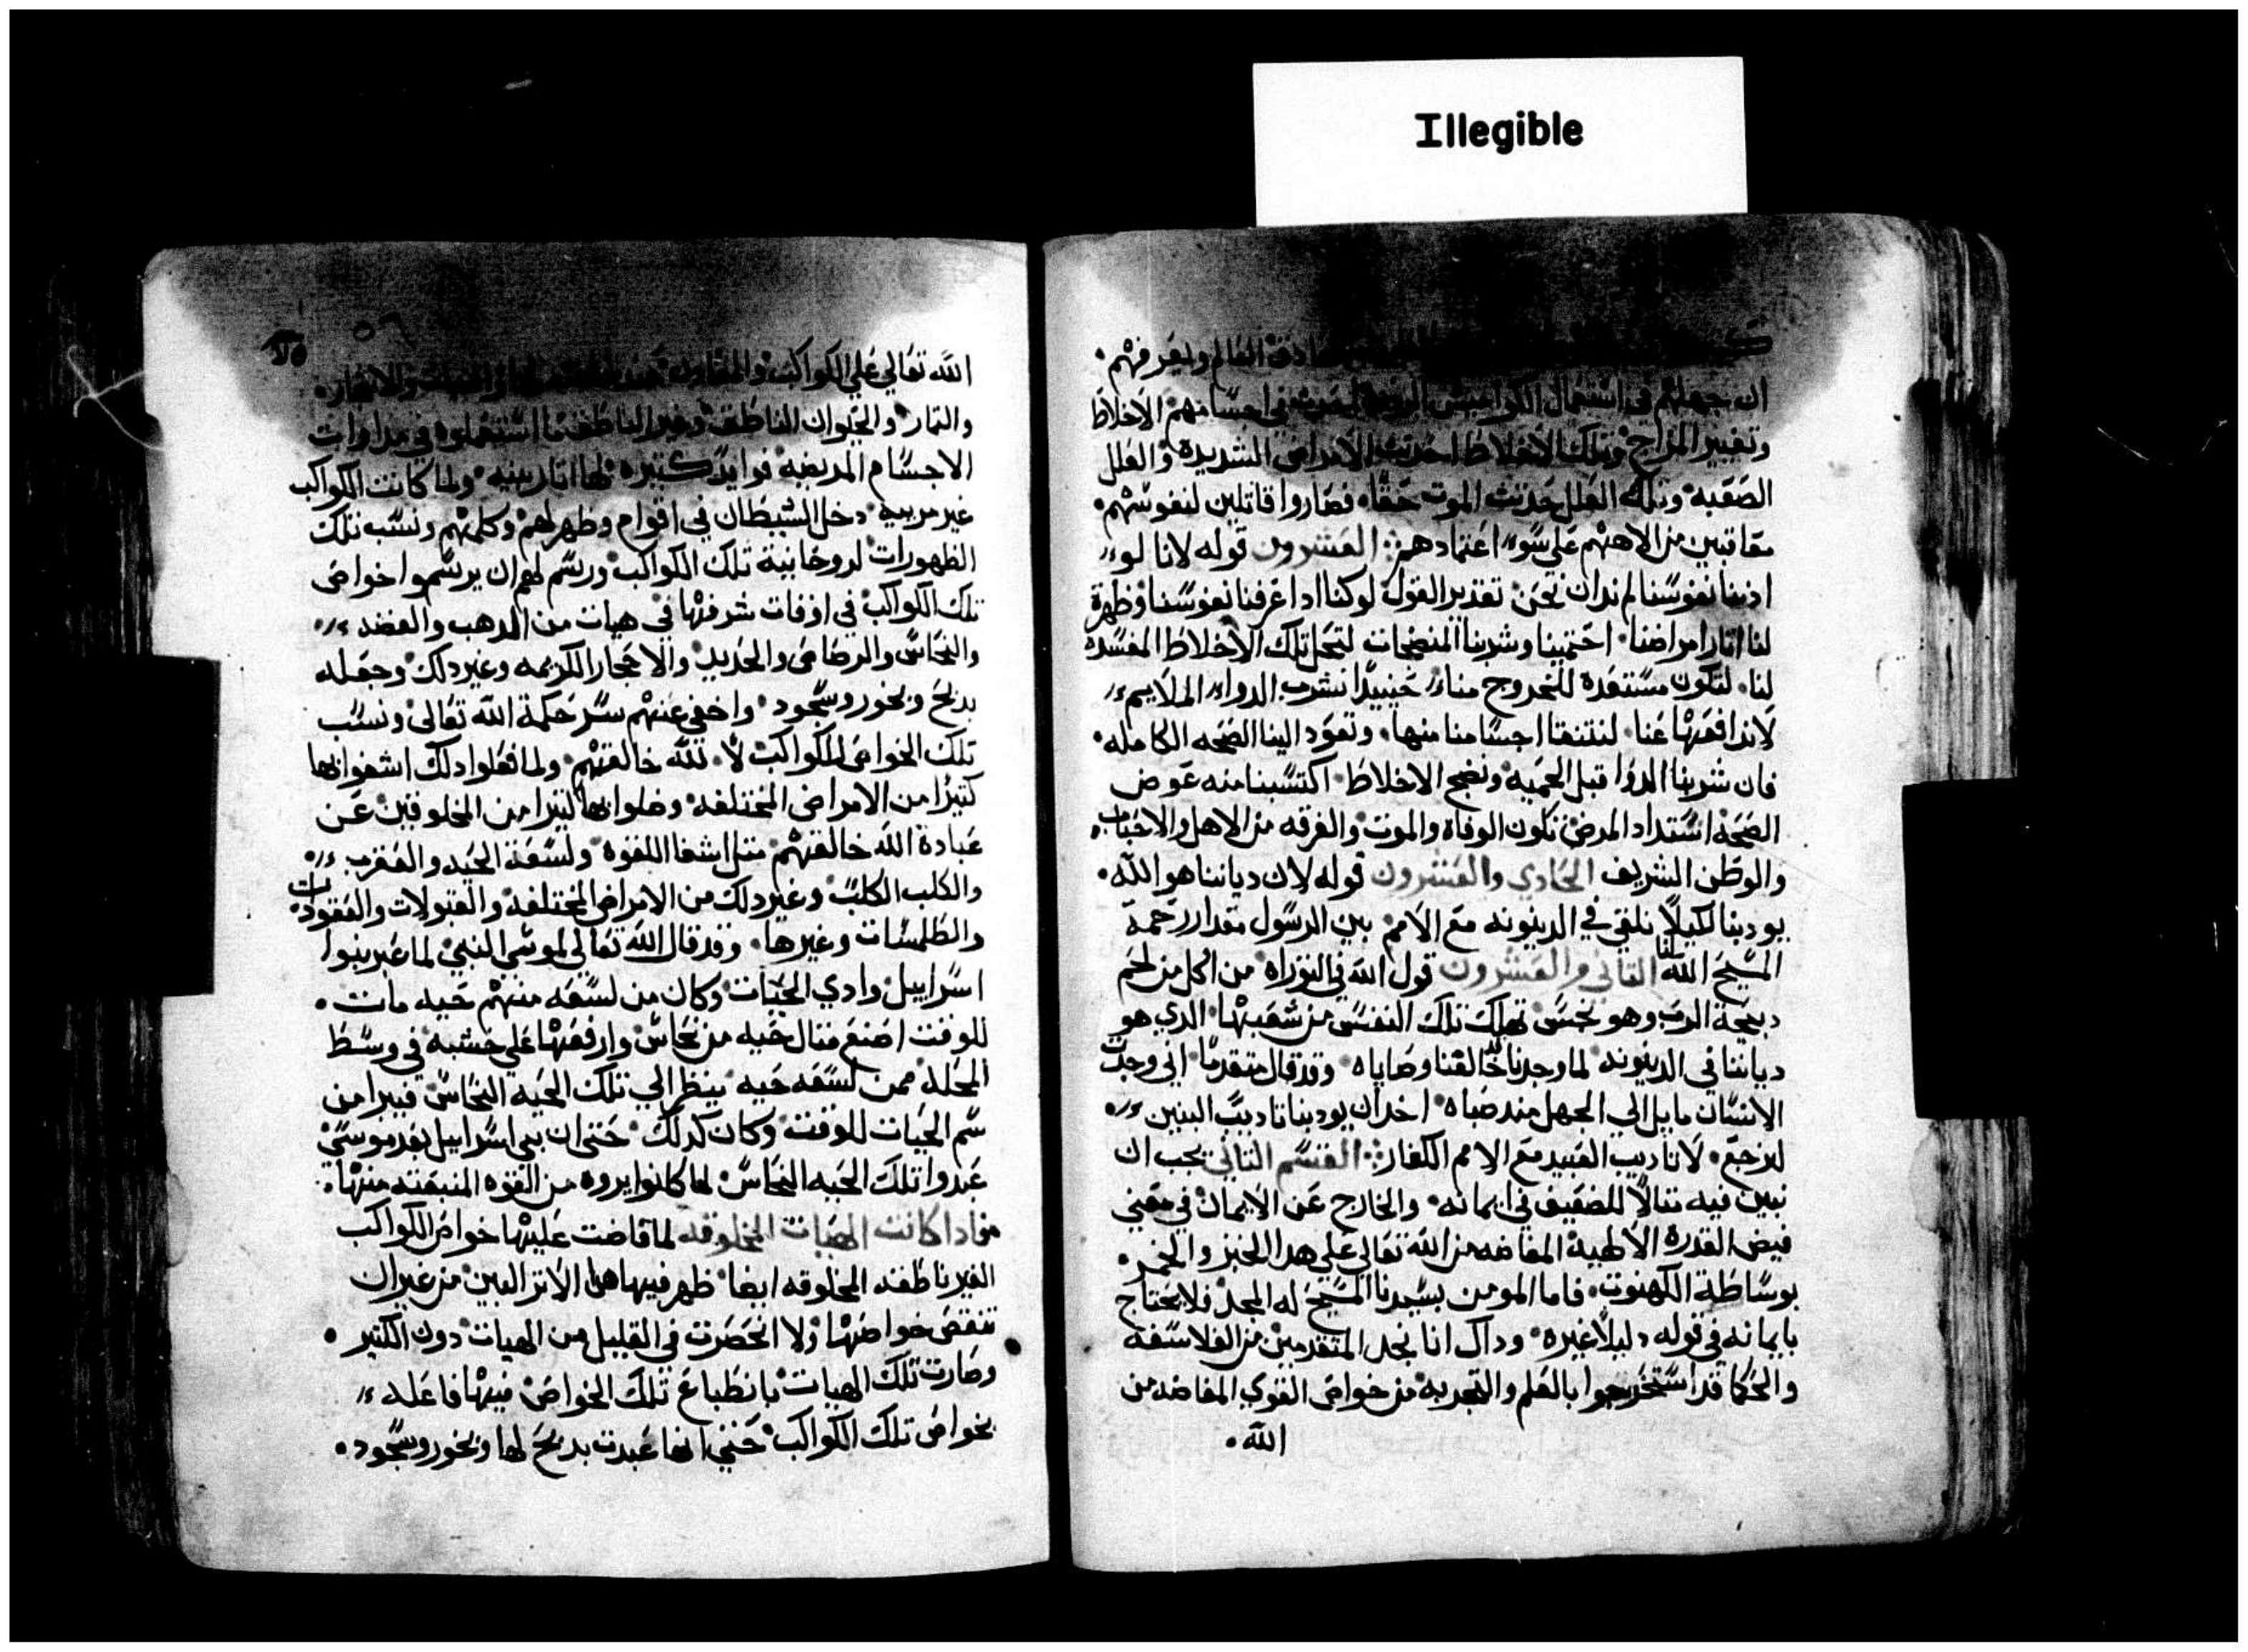 Illegible
العالم وليعرفهم
ان جهلهم في استعمال الاخلاط
وتغيير المزاج وتلك الاخلاط احدثت الامراض الشديدة والعلل
الصعبه وتلك العلل حدتث الموت حقا، فصاروا قاتلين لنفوسهم
معاقبين من الاههم علي سوء اعتمادهم العشرون قوله لانا لو
ادينا نفوسنا لم ندان نحن تقدير القول لو كنا ادا عرفنا نفوسنا وظهرة
لنا اتار امراضنا احتمينا وشربنا المنضجات لتحل تلك الاخلاط المفسده
لنا، لتكون مستعدة للخروج منا، حينيدا نشرب الدواء الملاييم
لاندافعها عنا، لنتنقا اجسامنا منها، وتعود الينا الصحه الكامله
فان شربنا الدوا قبل الحميه ونضج الاخلاط اكتسبنا منه عوض
الصحه اشتداد المرض تكون الوفاه والموت والفرقه من الاهل والاحباب
والوطن الشريف الحادي والعشرون قوله لان دياننا هو الله
يودبنا لكيلا نلقي في الدينونه مع الامم بين الرسول مقدار رحمة
المسيح الله لنا التاني والعشرون قول الله في التوراه من اكل من لحم
دبيحة الرب وهو نجس تهلك تلك النفس من شعبها الدي هو
دياننا في الدينونه لما وجدنا خالفنا وصاياه وقد قال متقدما اني وجدت
الانسان مايل الي الجهل مند صباه اخد ان يودبنا تاديب البنين
لنرجع، لا تاديب العبيد مع الامم الكفار القسم التاني يجب ان
نبين فيه متالا للضعيف في ايمانه والخارج عن الايمان في معني
فيض القدرة الالهية المفاضه من الله تعالي علي هدا الخبز والخمر
بوساطة الكهنوت، فاما المومن بسيدنا المسيح له المجد فلا يحتاج
بايمانه في قوله دليلا غيره وداك انا نجد المتقدمين من الفلاسفة
والحكما قد استخرجوا بالعلم والتجربه من خواص القوي المفاضه من
الله
٥٦
الله تعالي علي الكواكب والمعادن
والتمار والحيوان الناطق وغير الناطق ما استعملوه في مداوات
الاجسام المريضه فوايد كتيره لها اتار بينه ولما كانت الكواكب
غير مربيه دخل الشيطان في اقوام وظهر لهم وكلمهم ونسب تلك
الظهورات لروحانية تلك الكواكب ورسم لهم ان يرسموا خواص
تلك الكواكب في اوقات شرفها في هيات من الدهب والفضه
والنحاس والرصاص والحديد والاحجار الكريمه وغير دلك وجعله
بدبح وبخور وسجود واخفي عنهم سر حكمة الله تعالي ونسب
تلك الخواص للكواكب لا لله خالقهم ولما فعلوا دلك اشفوا بها
كتيرا من الامراض المختلفه وضلوا بها كتيرا من المخلوقين عن
عبادة الله خالقهم متل اشفا اللقوه ولسعة الحيه والعقرب
والكلب الكلب وغير دلك من الامراض المختلفه والقبولات والعقودات
والطلسمات وغيرها، وقد قال الله تعالي لموسي النبي لما عبر بنوا
اسراييل وادي الحيات وكان من لسعه منهم حيه مات
للوقت اصنع متال حيه من نحاس وارفعها علي خشبه في وسط
المحله فمن لسعه حيه ينظر الي تلك الحيه النحاس فيبرا من
سم الحيات للوقت وكان كدلك حتي ان بني اسراييل بعد موسي
عبدوا تلك الحيه النحاس لما كانوا يروه من القوه المنبعته منها
فادا كانت الهيات المخلوقه لما فاضت عليها خواص الكواكب
الغير ناطقه المخلوقه ايضا ظهر فيها هدا الاتر البين من غير ان
تنقص خواصها ولا انحصرت في القليل من الهيات دون الكتير
وصارت تلك الهيات بانطباع تلك الخواص فيها فاعله
بخواص تلك الكواكب حتي انها عبدت بدبح لها وبخور وسجود